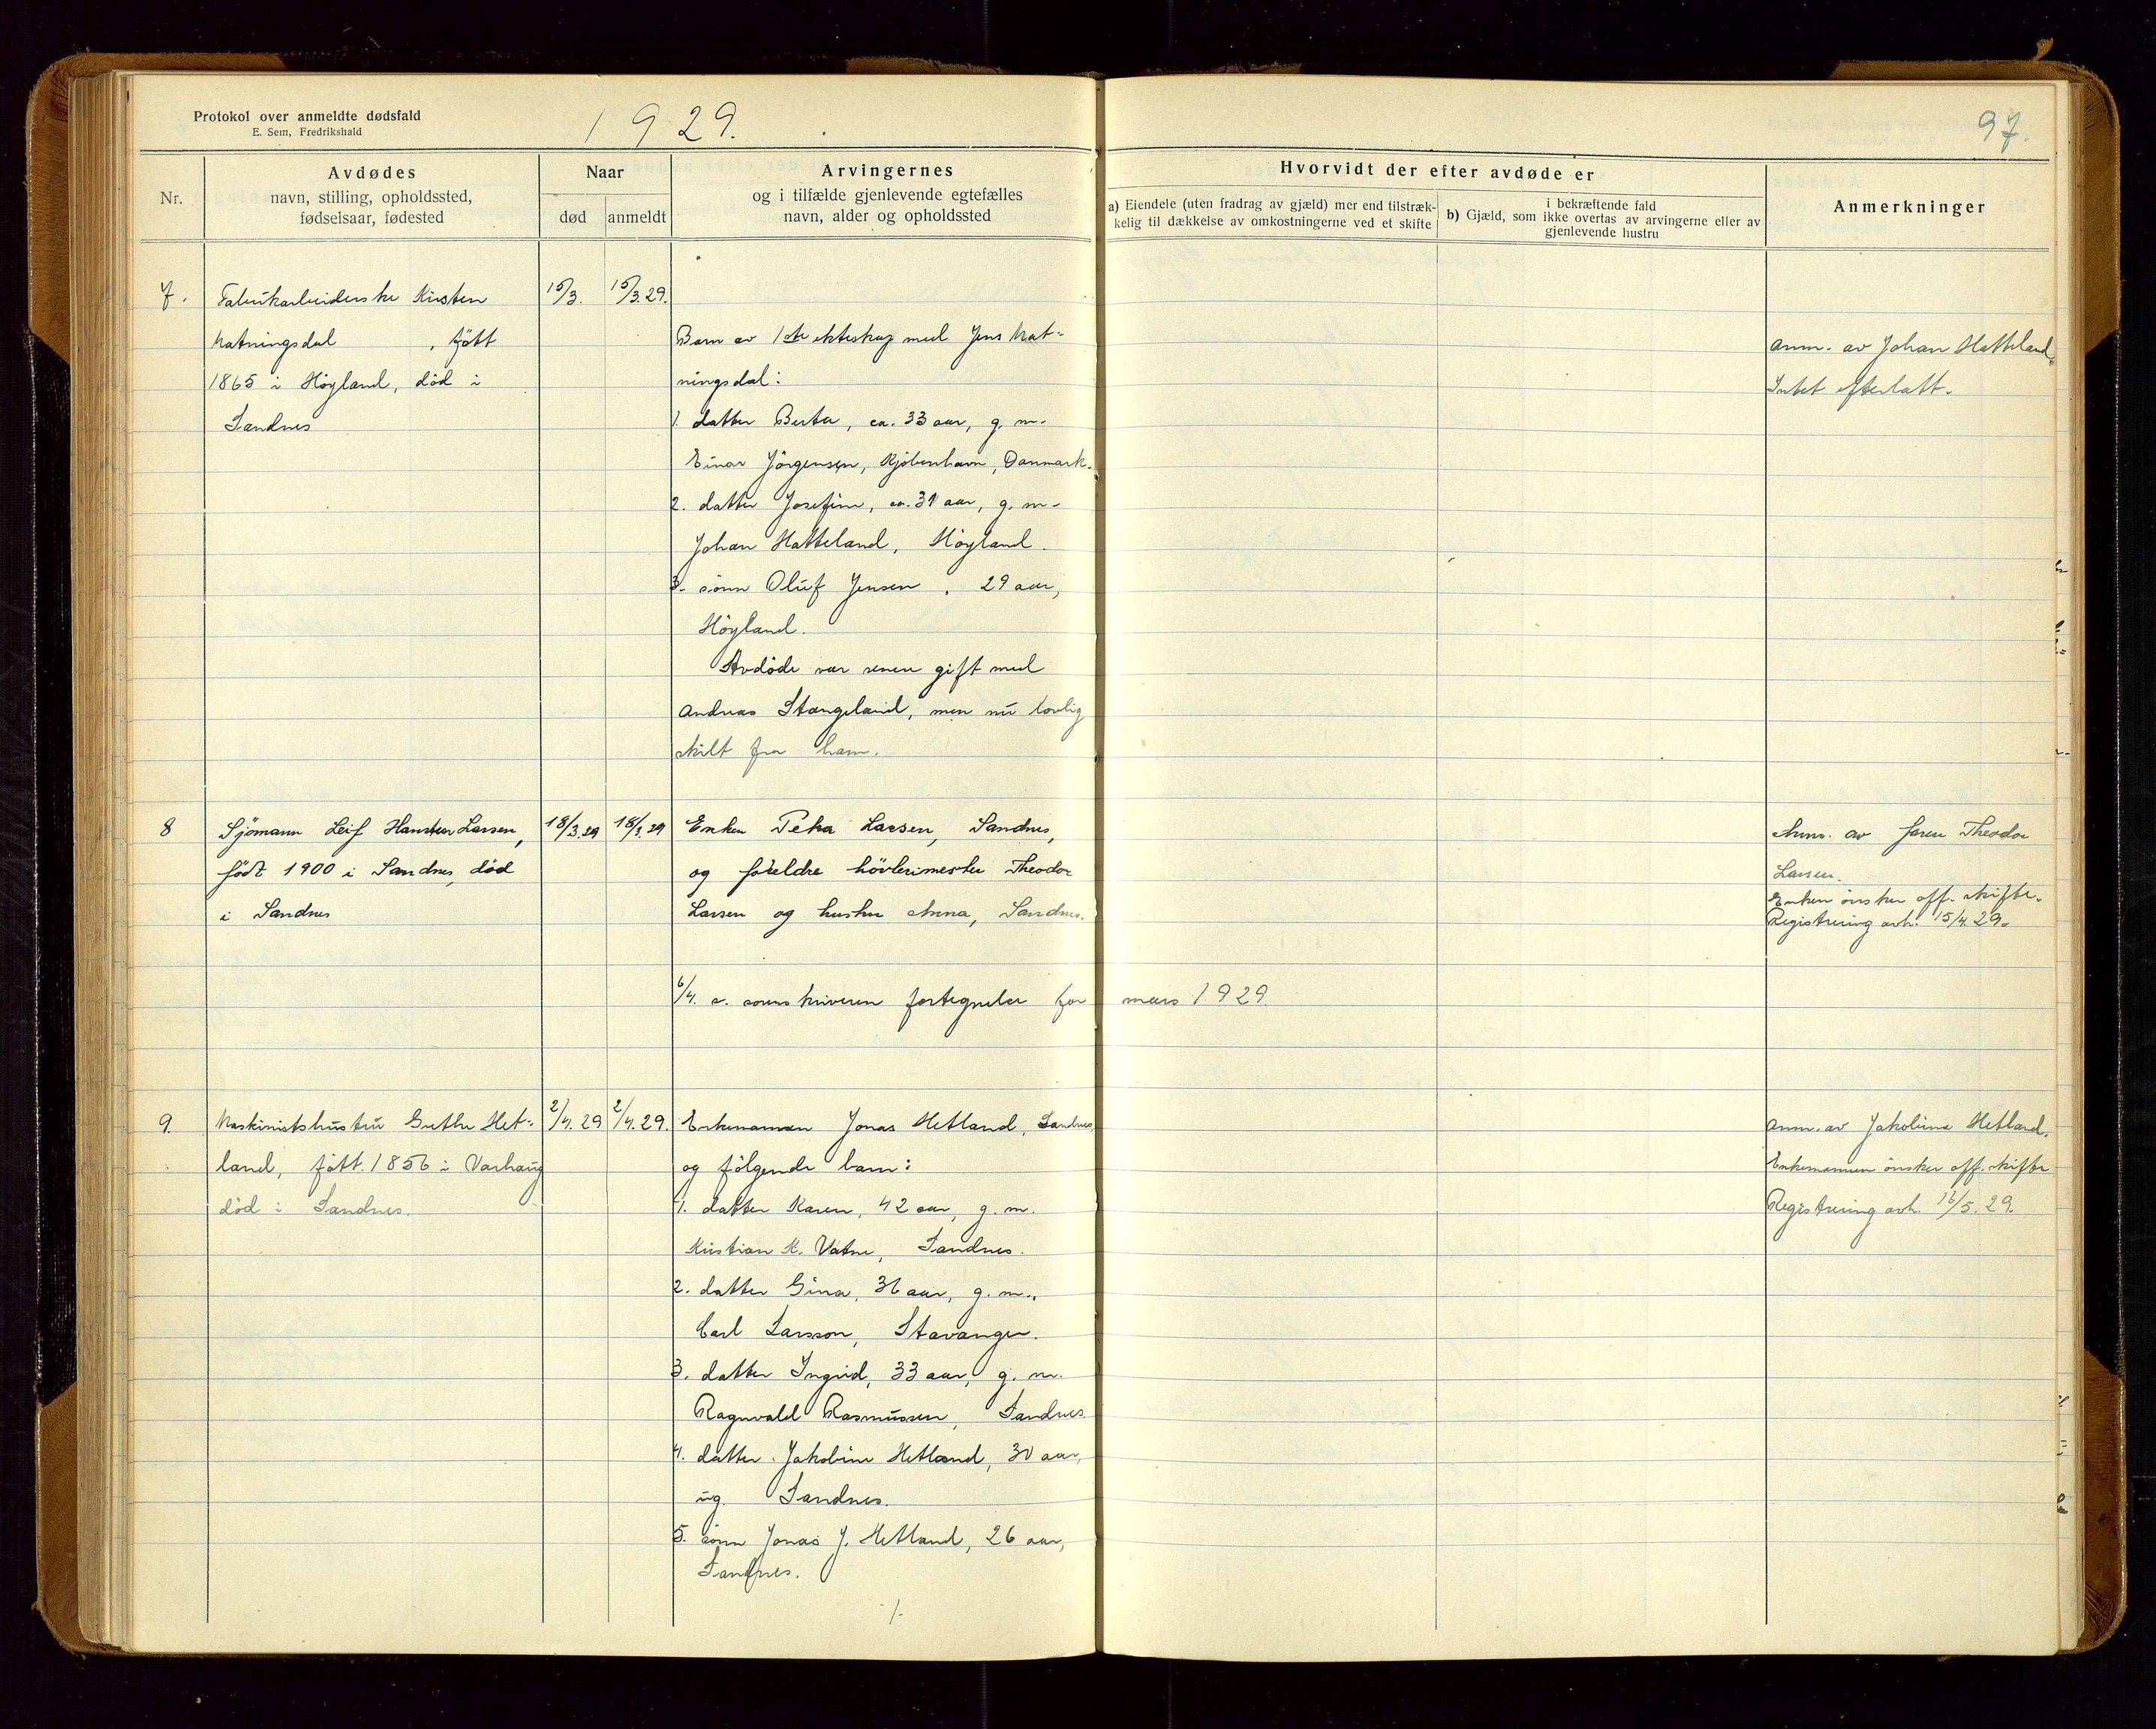 Protokol over anmeldte dødsfald
E. Sem, Fredrikshald
1929.
97.
Nr.
Avdødes
navn, stilling, opholdssted,
fødselsaar, fødested
Naar
død
anmeldt
Arvingernes
og i tilfælde gjenlevende egtefælles
navn, alder og opholdssted
Hvorvidt der efter avdøde er
a) Eiendele (uten fradrag av gjæld) mer end tilstræk-
kelig til dækkelse av omkostningerne ved et skifte
i bekræftende fald
b) Gjæld, som ikke overtas av arvingerne eller av
gjenlevende hustru
Anmerkninger
7.
Fabrikarbeiderske Kirsten
Matningsdal, født
1865 i Høyland, død i
Sandnes
15/3.
15/3.29.
Barn av 1ste ekteskap med Jens Mat-
ningsdal:
1. datter Berta, ca. 33 aar, g. m.
Einar Jörgensen, Kjöbenhavn, Danmark.
2. datter Josefine, ca. 31 aar, g. m.
Johan Hatteland, Höyland.
3. sönn Oluf Jensen, 29 aar,
Höyland.
Avdöde var senere gift med
Andreas Stangeland, men nu lovlig
skilt fra ham.
Anm. av Johan Hatteland.
Intet efterlatt.
8
Sjömann Leif Larsen,
född 1900 i Sandnes, död
i Sandnes
18/3.29
18/3.29
Enken Petra Larsen, Sandnes,
og foreldre hövlerimester Theodor
Larsen og hustru Anna, Sandnes.
Anm. av faren Theodor
Larsen.
Enken önsker off. skifte.
Registrering avh. 15/4.29.
6/4. s. sorenskriveren fortegnelse for mars 1929.
9.
Maskinistshustru Grethe Het-
land, född 1856 i Varhaug
död i Sandnes.
2/4.29
2/4.29.
Enkemannen Jonas Hetland, Sandnes,
og fölgende barn:
1. datter Karen, 42 aar, g. m.
Kristian K. Vatne, Sandnes.
2. datter Gina, 36 aar, g. m.
Carl Larsson, Stavanger.
3. datter Ingrid, 33 aar, g. m.
Ragnvald Rasmussen, Sandnes.
4. datter Jakobine Hetland, 30 aar,
ug. Sandnes.
5. sönn Jonas J. Hetland, 26 aar,
Sandnes.
Anm. av Jakobine Hetland.
Enkemannen önsker off. skifte
Registrering avh. 16/5.29.